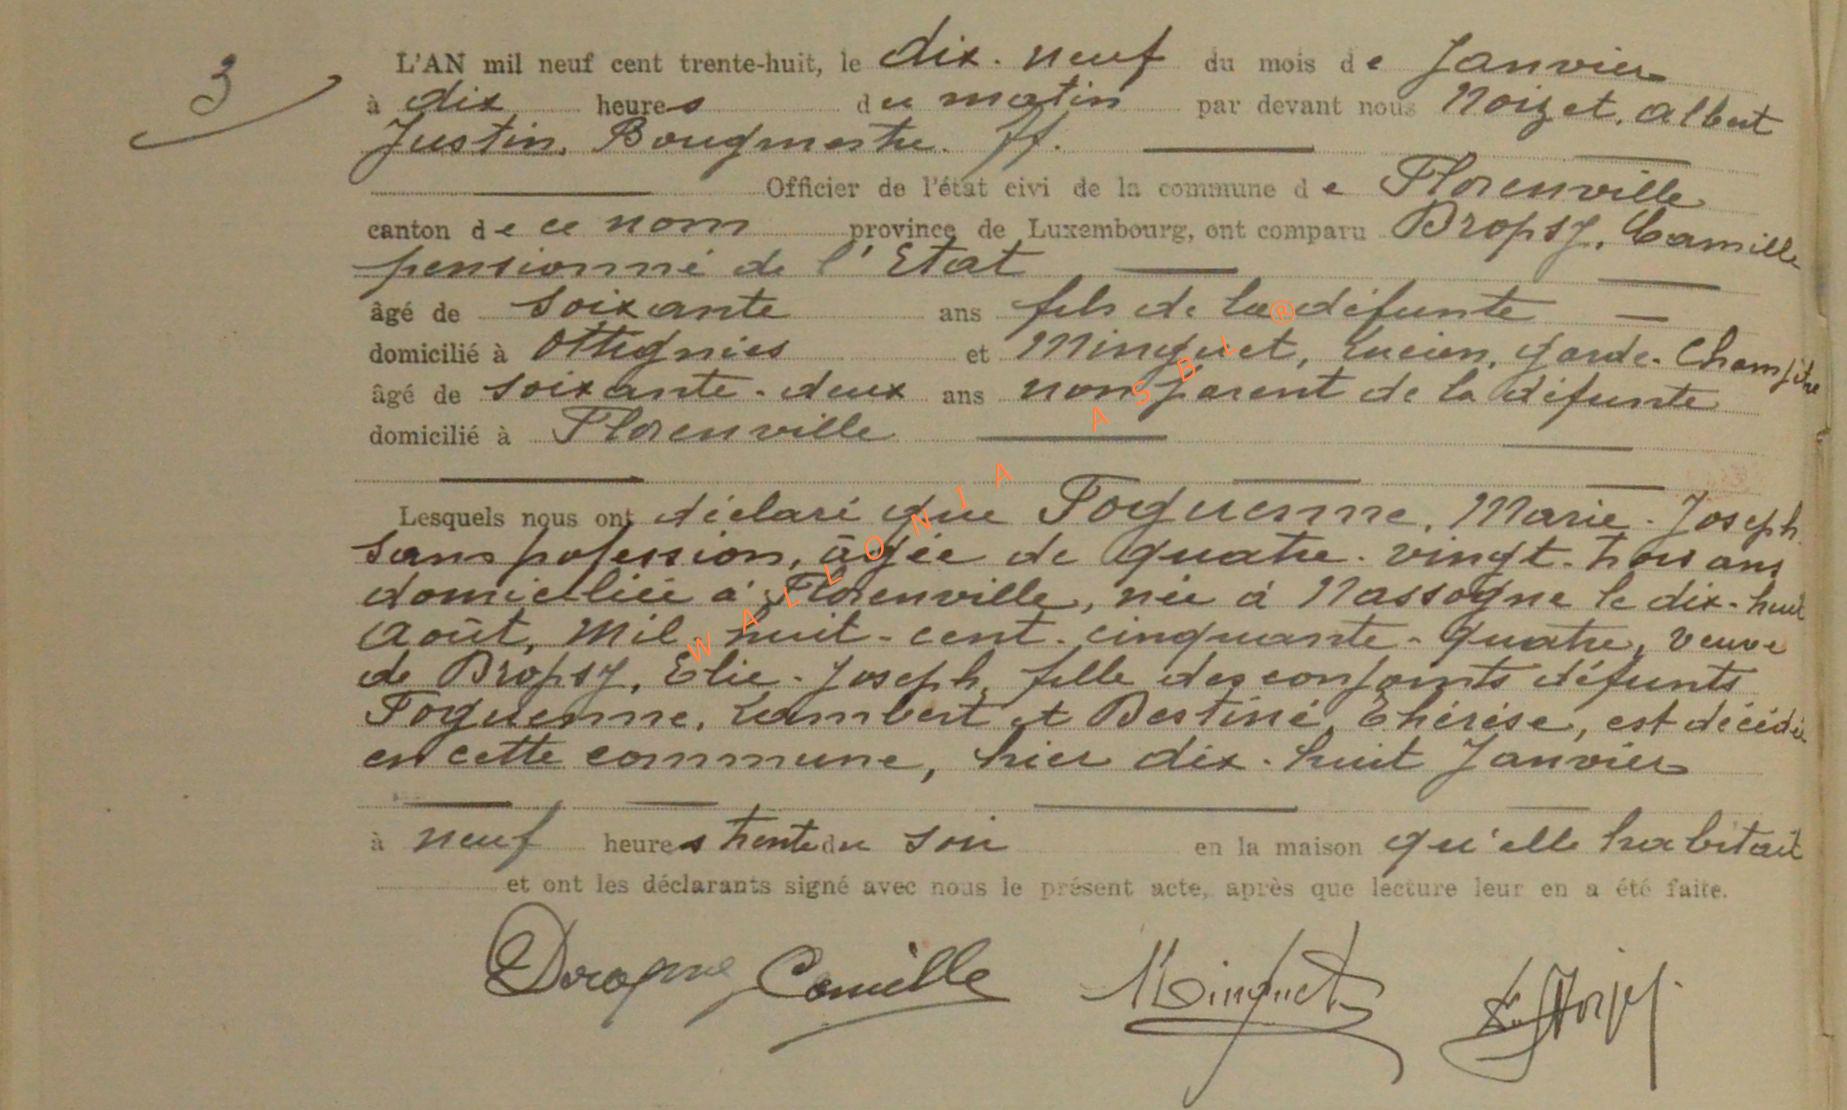 3
L'AN mil neuf cent trente-huit, le dix-neuf du mois de Janvier
à dix heures du matin par devant nous Noizet, Albert
Justin, Bougmestre ff.
Officier de l'état civi de la commune de Florenville
canton de ce nom province de Luxembourg, ont comparu Bropsy, Camille
pensionné de l'Etat
âgé de soixante ans fils de la défunte
domicilié à Ottignies et Minguet, Lucien, garde-Champêtre
âgé de soixante-deux ans non parent de la défunte
domicilié à Florenville
Lesquels nous ont déclaré que Foguenne, Marie-Joseph
sans pofession, âgée de quatre-vingt-trois ans
domiciliée à Florenville, née à Nassogne le dix-huit
Août, Mil huit-cent-cinquante-quatre, veuve
de Bropsy, Elie-Joseph, fille des conjoints défunts
Foguenne, Lambert et Destiné, Thérèse, est décédée
en cette commune, hier dix-huit Janvier
à neuf heures trente du soir en la maison qu'elle habitait
et ont les déclarants signé avec nous le présent acte, après que lecture leur en a été faite.
Camille Minguet
WALLONIA ASBL ®